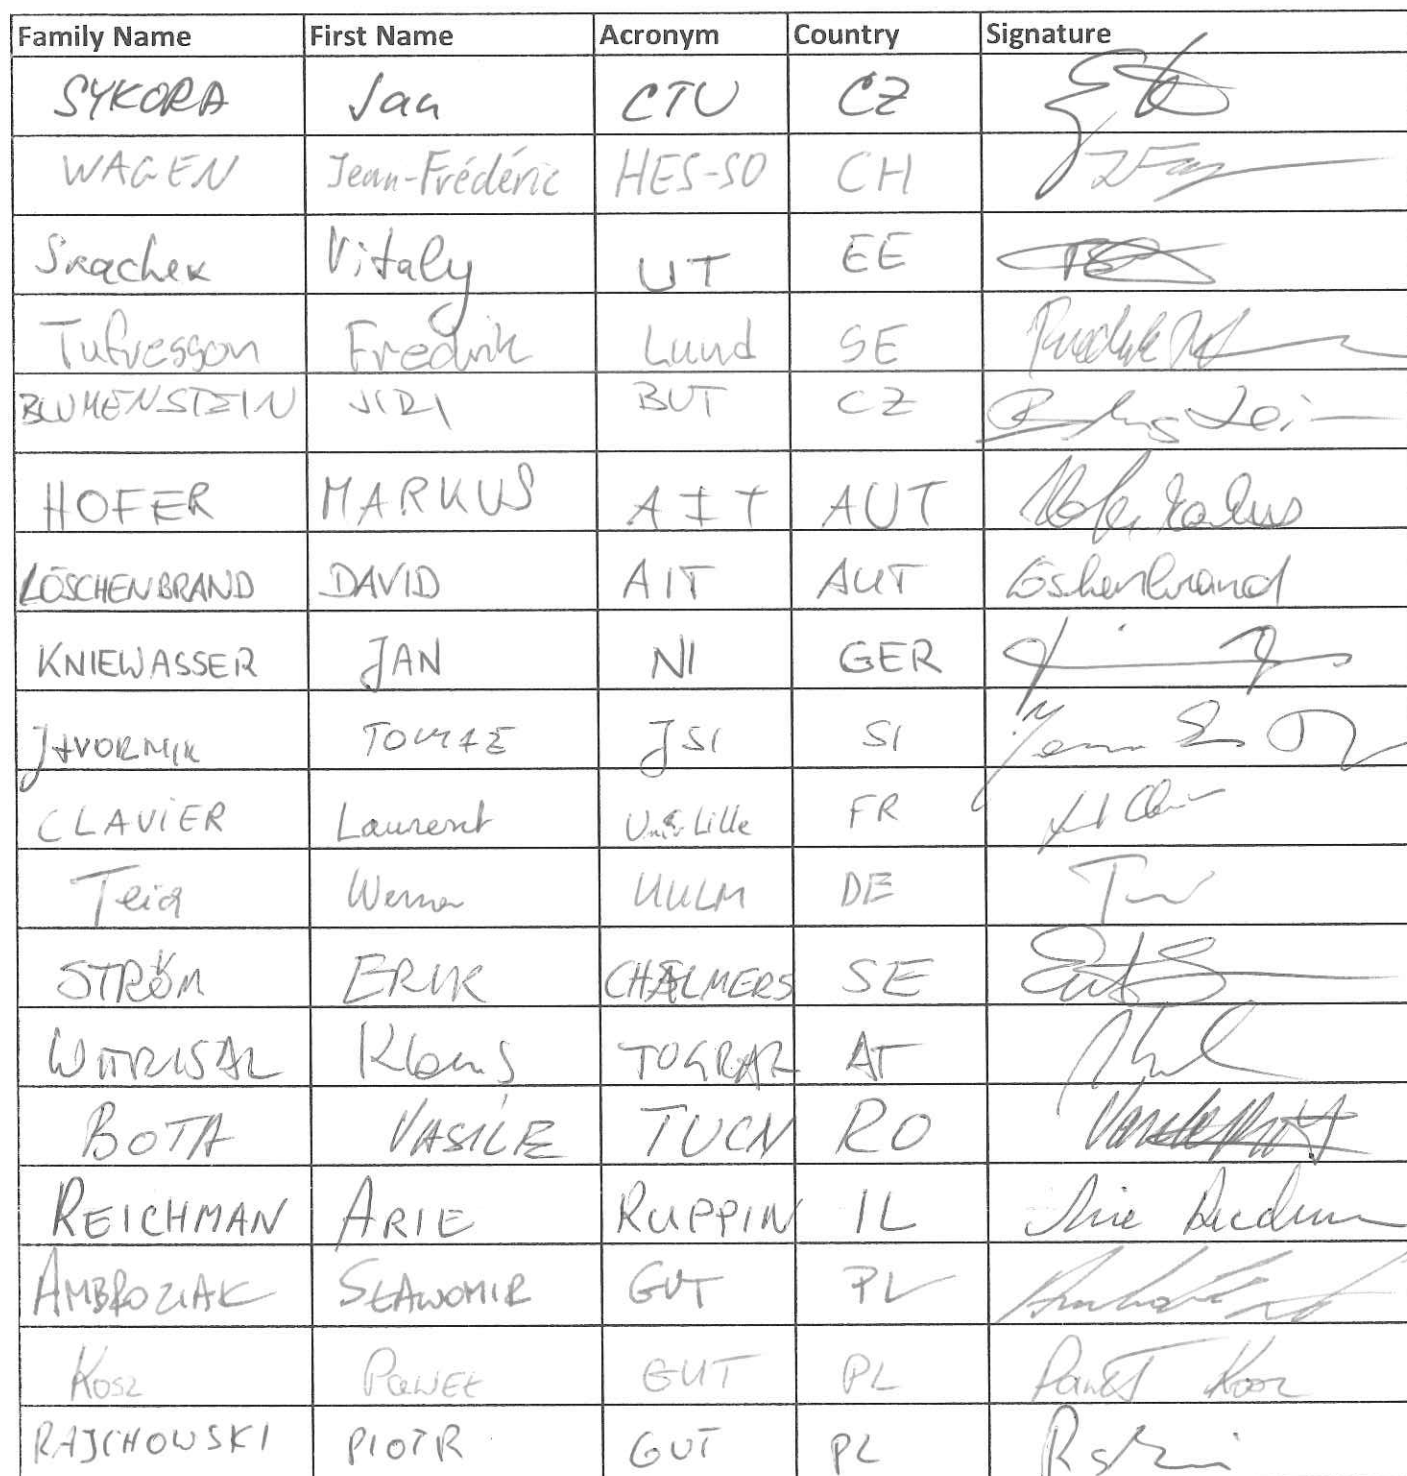 Family Name First Name Acronym Country Signature
SYKORA Jan CTU CZ
WAGEN Jean-Frédéric HES-SO CH
Skachek Vitaly UT EE
Tufvesson Fredrik Lund SE
BLUMENSTEIN JIRI BUT CZ
HOFER MARKUS AIT AUT Hofer Markus
LÖSCHENBRAND DAVID AIT AUT Löschenbrand
KNIEWASSER JAN NI GER
JAVORNIK TOMAŽ JSI SI
CLAVIER Laurent Univ Lille FR
Teich Werner UULM DE
STRÖM ERIK CHALMERS SE
WITRISAL Klaus TUGRAZ AT
BOTA VASILE TUCN RO
REICHMAN ARIE RUPPIN IL Arie Reichman
AMBROZIAK SŁAWOMIR GUT PL
Kosz PAWEŁ GUT PL Paweł Kosz
RAJCHOWSKI PIOTR GUT PL